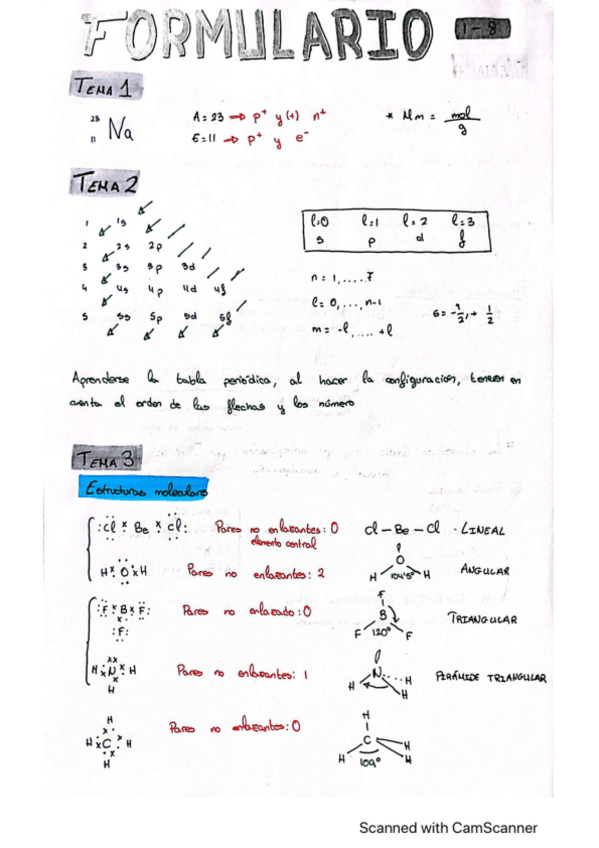 FORMULARIO 1-8
TEMA 1
23
11 Na
A=23 → p⁺ y (+) n⁺
* Mm = mol/g
E=11 → p⁺ y e⁻
TEMA 2
l=0 l=1 l=2 l=3
s p d f
1 1s
2 2s 2p
3 3s 3p 3d
4 4s 4p 4d 4f
5 5s 5p 5d 5f
n = 1,.....7
l = 0,...,n-1
m = -l,.... +l
s = -1/2, + 1/2
Aprenderse la tabla periódica, al hacer la configuración, tener en
cuenta el orden de las flechas y los número
TEMA 3
Estructuras moleculares
:Cl × Be × Cl: Pares no enlazantes: 0 Cl – Be – Cl · LINEAL
elemento central
H × O × H Pares no enlazantes: 2 O H 104'5° H ANGULAR
:F × B × F: Pares no enlazado: 0 F B F 120° F TRIANGULAR
:F:
H × N × H Pares no enlazantes: 1 N H H H PIRÁMIDE TRIANGULAR
H
H
H × C × H Pares no enlazantes: 0 H C H H H 109°
H
Scanned with CamScanner